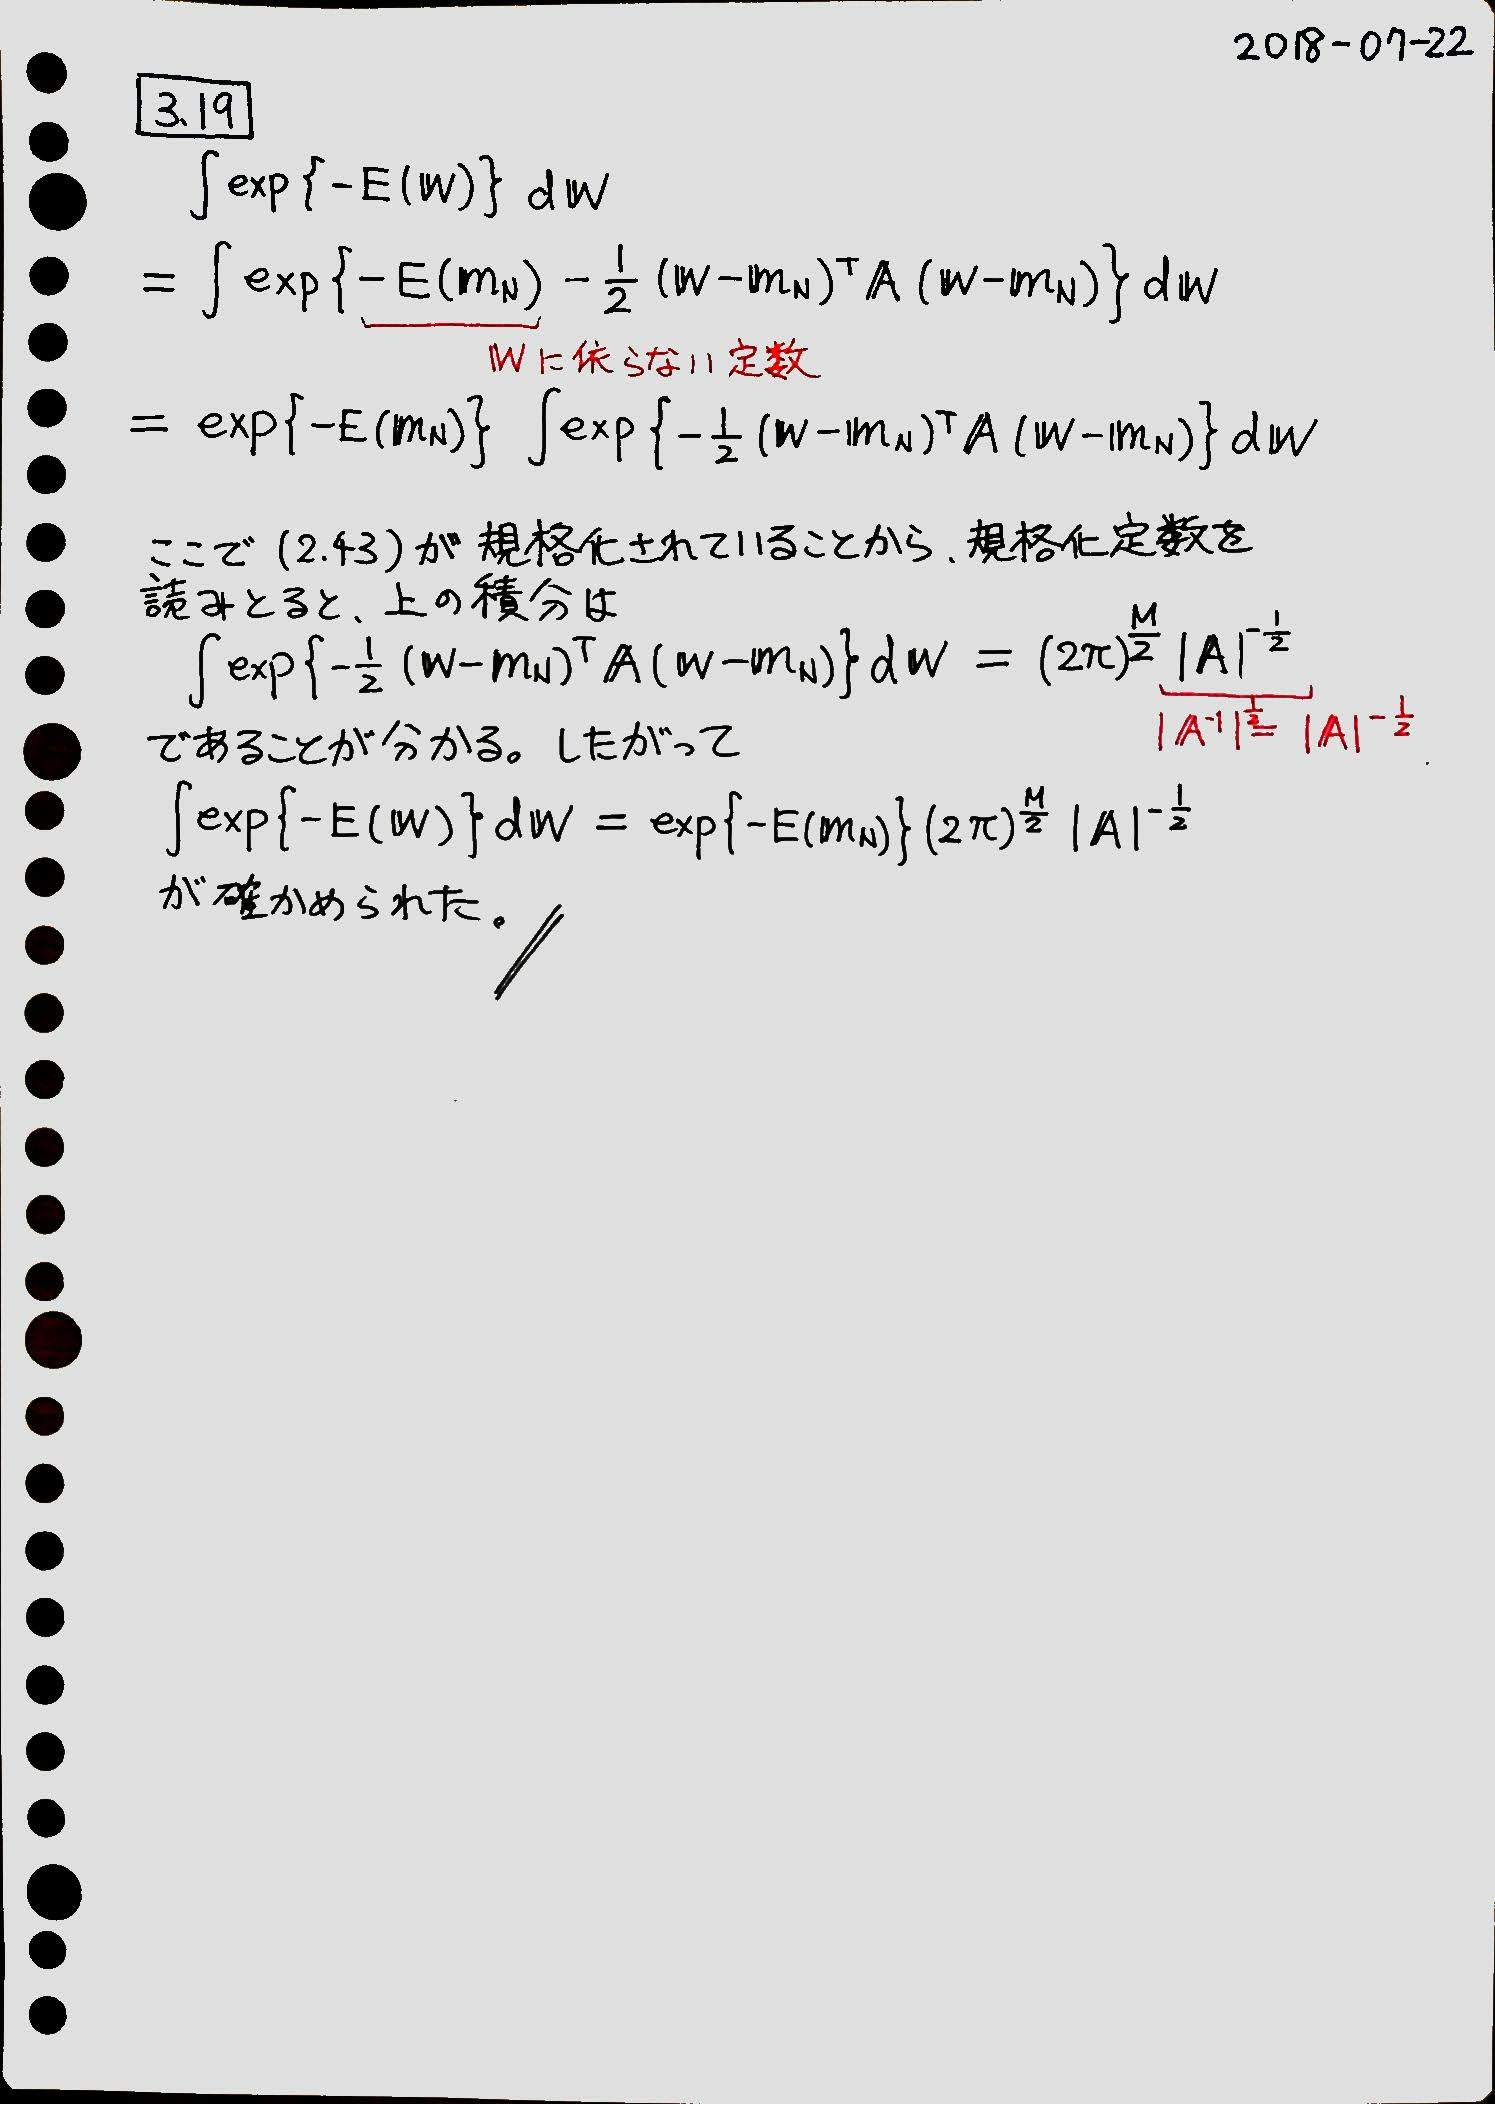 2018-07-22
3.19
∫exp{-E(𝕎)} d𝕎
= ∫exp{-E(𝕞_N) - 1/2 (𝕎-𝕞_N)^T 𝔸 (𝕎-𝕞_N)} d𝕎
𝕎に依らない定数
= exp{-E(𝕞_N)} ∫exp{-1/2 (𝕎-𝕞_N)^T 𝔸 (𝕎-𝕞_N)} d𝕎
ここで (2.43) が 規格化されていることから、規格化定数を
読みとると、上の積分は
∫exp{-1/2 (𝕎-𝕞_N)^T 𝔸 (𝕎-𝕞_N)} d𝕎 = (2π)^{M/2} |𝔸|^{-1/2}
|𝔸^{-1}|^{1/2} = |𝔸|^{-1/2}
であることが分かる。したがって
∫exp{-E(𝕎)} d𝕎 = exp{-E(𝕞_N)} (2π)^{M/2} |𝔸|^{-1/2}
が確かめられた。